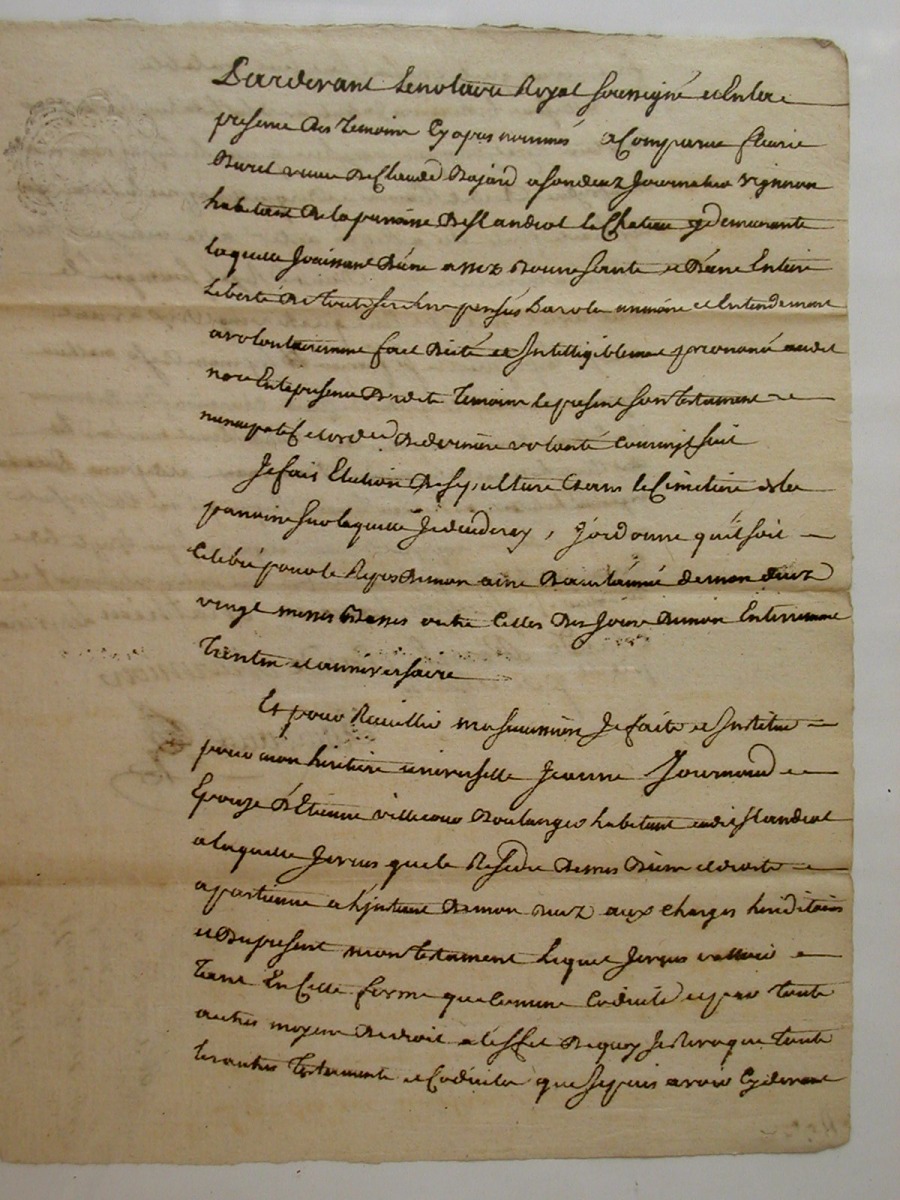 Pardevant le notaire Royal soussigné et En la
presence des temoins cy apres nommés a Comparue fleurie
Buret veuve de Claude Bajard a son deuz Journalier vigneron
habitant de la paroisse de St andeol le Chateau y demeurante
laquelle Jouissant d'une assez bonne sante et d'une Entiere
Liberté de toutes ses sens pensés parole memoire et Entendement
a volontairement fait dicté et Intelligiblement prononcé audit
nore En la presence desdits temoins le present son testament
nuncupatif et ordce de derniere volonté comme s'suit
Je fais Election de sepulture dans le Cimetiere de la
paroisse sur laquelle Je decederay, J'ordonne qu'il soit
Celebré pour le Repos de mon ame dans l'année de mon deuz
vingt messes Basses outre Celles des Jours de mon Enterrement
Trentin et anniversaire
Et pour Recueillir ma succession Je faits et Institue
pour mon heritiere universelle Jeanne Journoud
Epouze d'Etienne villecour Boulanger habitant audit St andeol
a laquelle Je veux que le Residu de mes Biens et droits
apartienne a l'instant de mon deuz aux charges hereditaires
et du present mon testament lequel Je veux valloir
tant En cette forme que comme Codicile et par toute
autres moyens de droit a l'effet de quoy Je Revoque touts
les autres testaments et Codiciles que Je puis avoir Cy devant